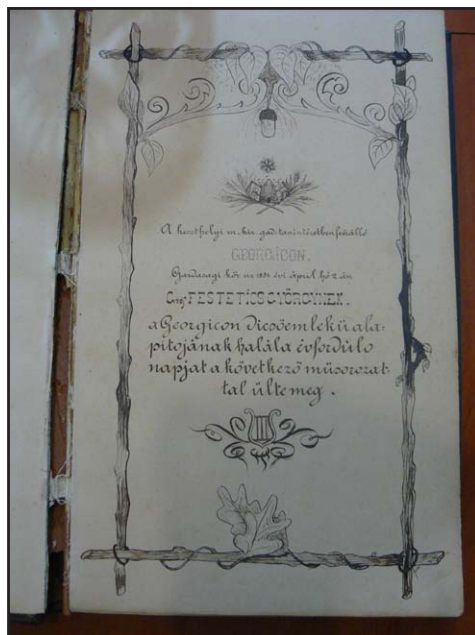 A keszthelyi m. kir. gad. tanintézetben fennálló
GEORGICON.
Gazdasagi kör az évi április hó 2 án
Gróf FESTETICS GYÖRGYNEK.
a Georgicon dicsőemlekü ala-
pitojának halála évforduló
napjat a következő műsorozat-
tal ülte meg.